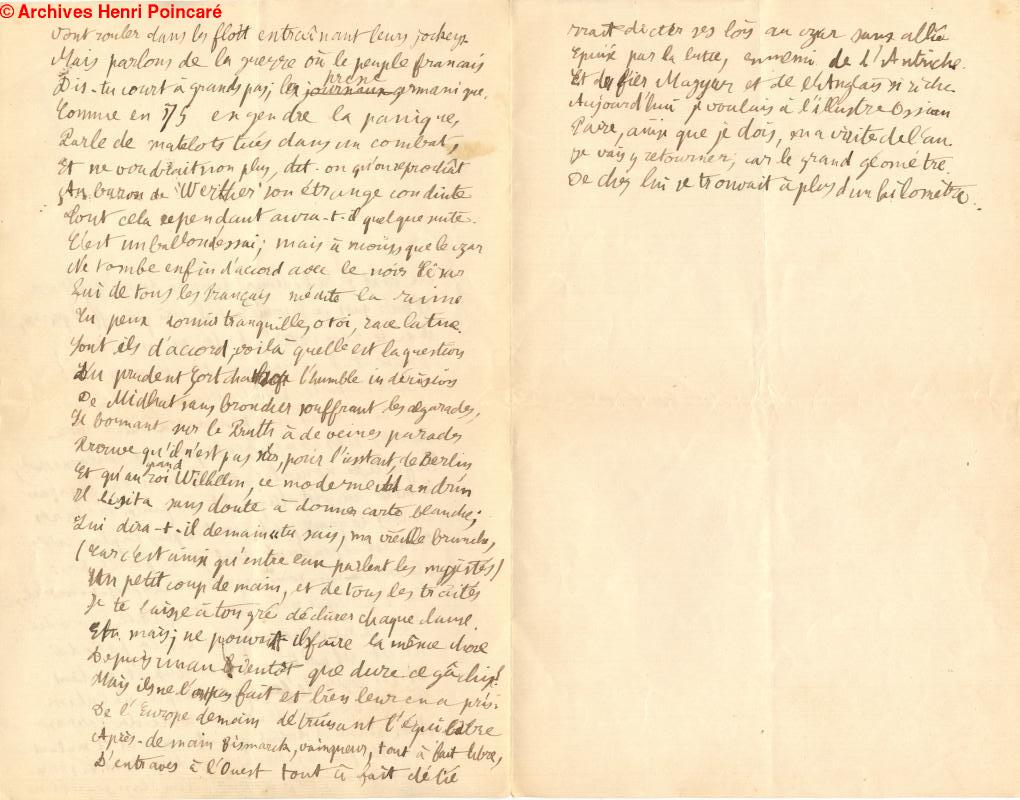 © Archives Henri Poincaré
Vont rouler dans les flots entraînant leurs jockeys
Mais parlons de la guerre où le peuple francais
Dis-tu court à grands pas; la journaux presse germanique,
Comme en 75 engendre la panique,
Parle de matelots tués dans un combat,
Et ne voudrait non plus, dit-on qu'on reproduit
Au baron de Werther son étrange conduite
Tout cela cependant aura-t-il quelque suite.
C'est un ballon d'essai; mais à moins que le czar
Ne tombe enfin d'accord avec le noir César
Qui de tous les Français médite la ruine
Tu peux dormir tranquille, o toi, race latine.
Sont ils d'accord, voilà quelle est la question
Du prudent Gortchakoff l'humble indécision
De Midhat sans broncher souffrant les algarades,
Se bornant sur le Pruth à de vaines parades
Prouve qu'il n'est pas sûr, pour l'instant, de Berlin
Et qu'au grand roi Wilhelm, ce moderne
Il hésita sans doute à donner carte blanche;
Lui dira-t-il demain "tu sais, ma vieille branche,
(Car c'est ainsi qu'entre eux parlent les majestés)
Un petit coup de main, et de tous les traités
Je te laisse à ton gré déchirer chaque clause.
Eh mais; ne pouvait il faire la même chose
Depuis un an bientôt que dure ce gâchis!
Mais ils ne l'ont pas fait et bien leur en a pris;
De l'Europe demain détruisant l'équilibre
Après-demain Bismarck, vainqueur, tout à fait libre,
D'entraves à l'Ouest tout à fait délié
rrait dicter ses lois au czar sans allié
Epuisé par la lutte, ennemi de l'Autriche.
Et du fier Magyar et de l'Anglais si riche
Aujourd'hui je voulais à l'illustre Ossian
Faire, ainsi que je dois, ma visite de l'an.
Je vais y retourner; car le grand géomètre.
De chez lui se trouvait à plus d'un kilomètre.